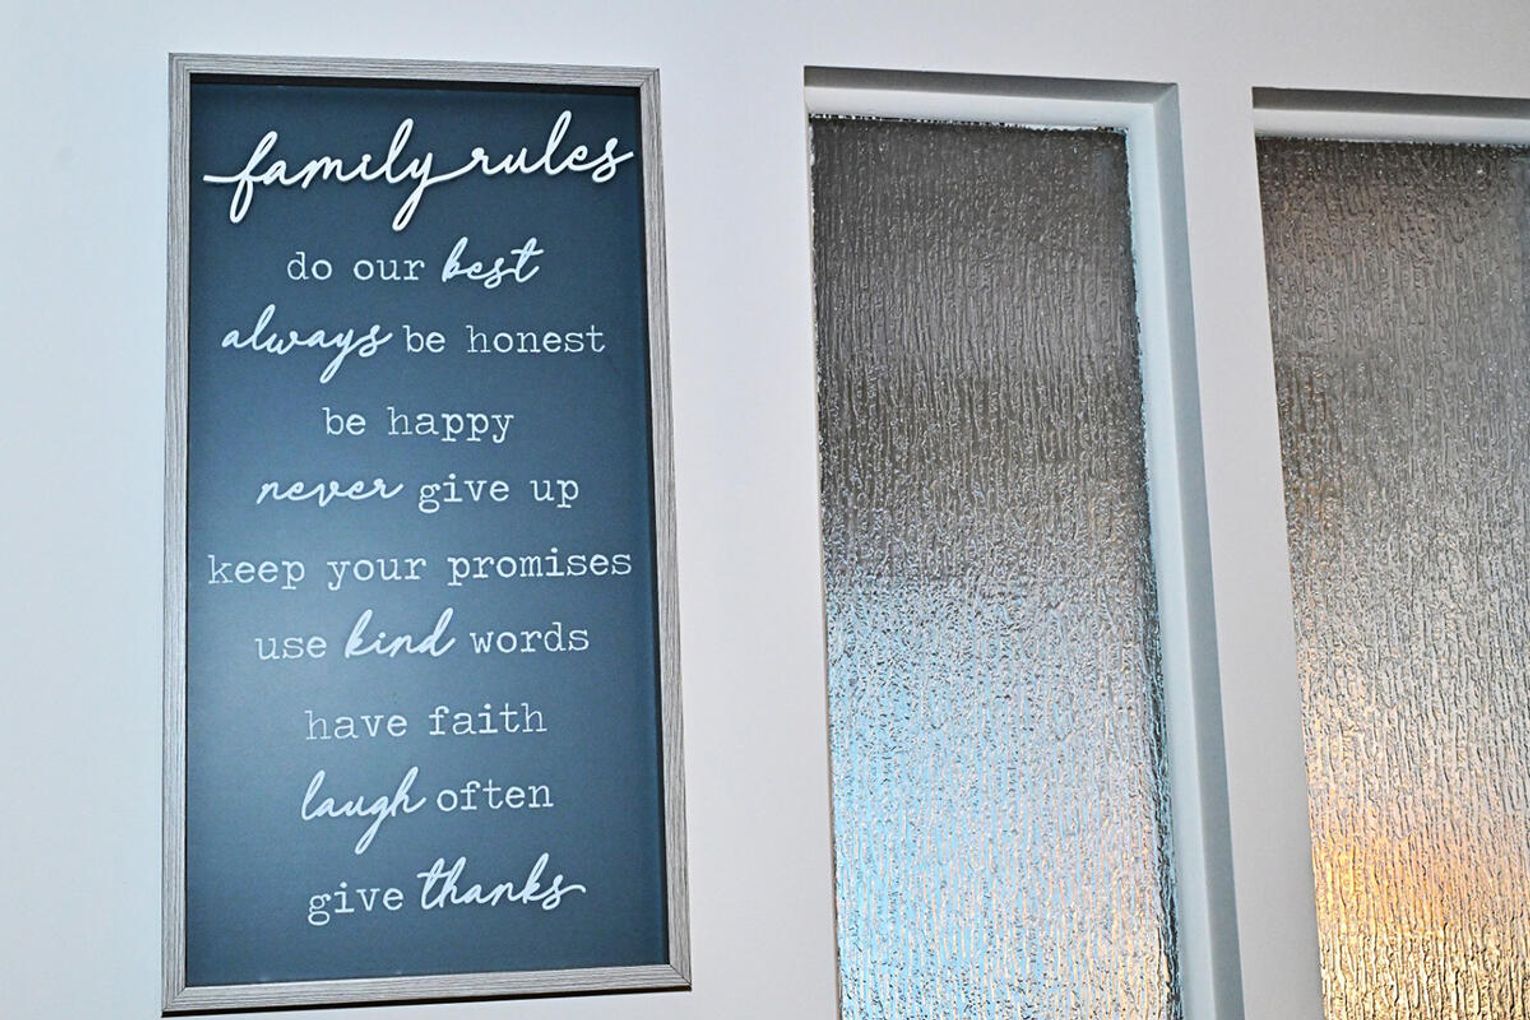 family rules
do our best
always be honest
be happy
never give up
keep your promises
use kind words
have faith
laugh often
give thanks